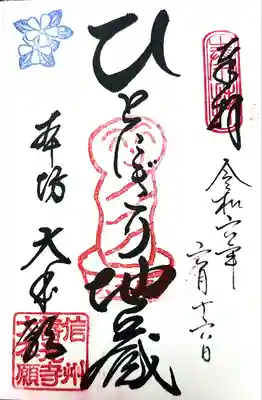 奉拝
令和六年
六月十六日
ひとにぎり地蔵
本坊
大本願
信州
善光寺
大本願